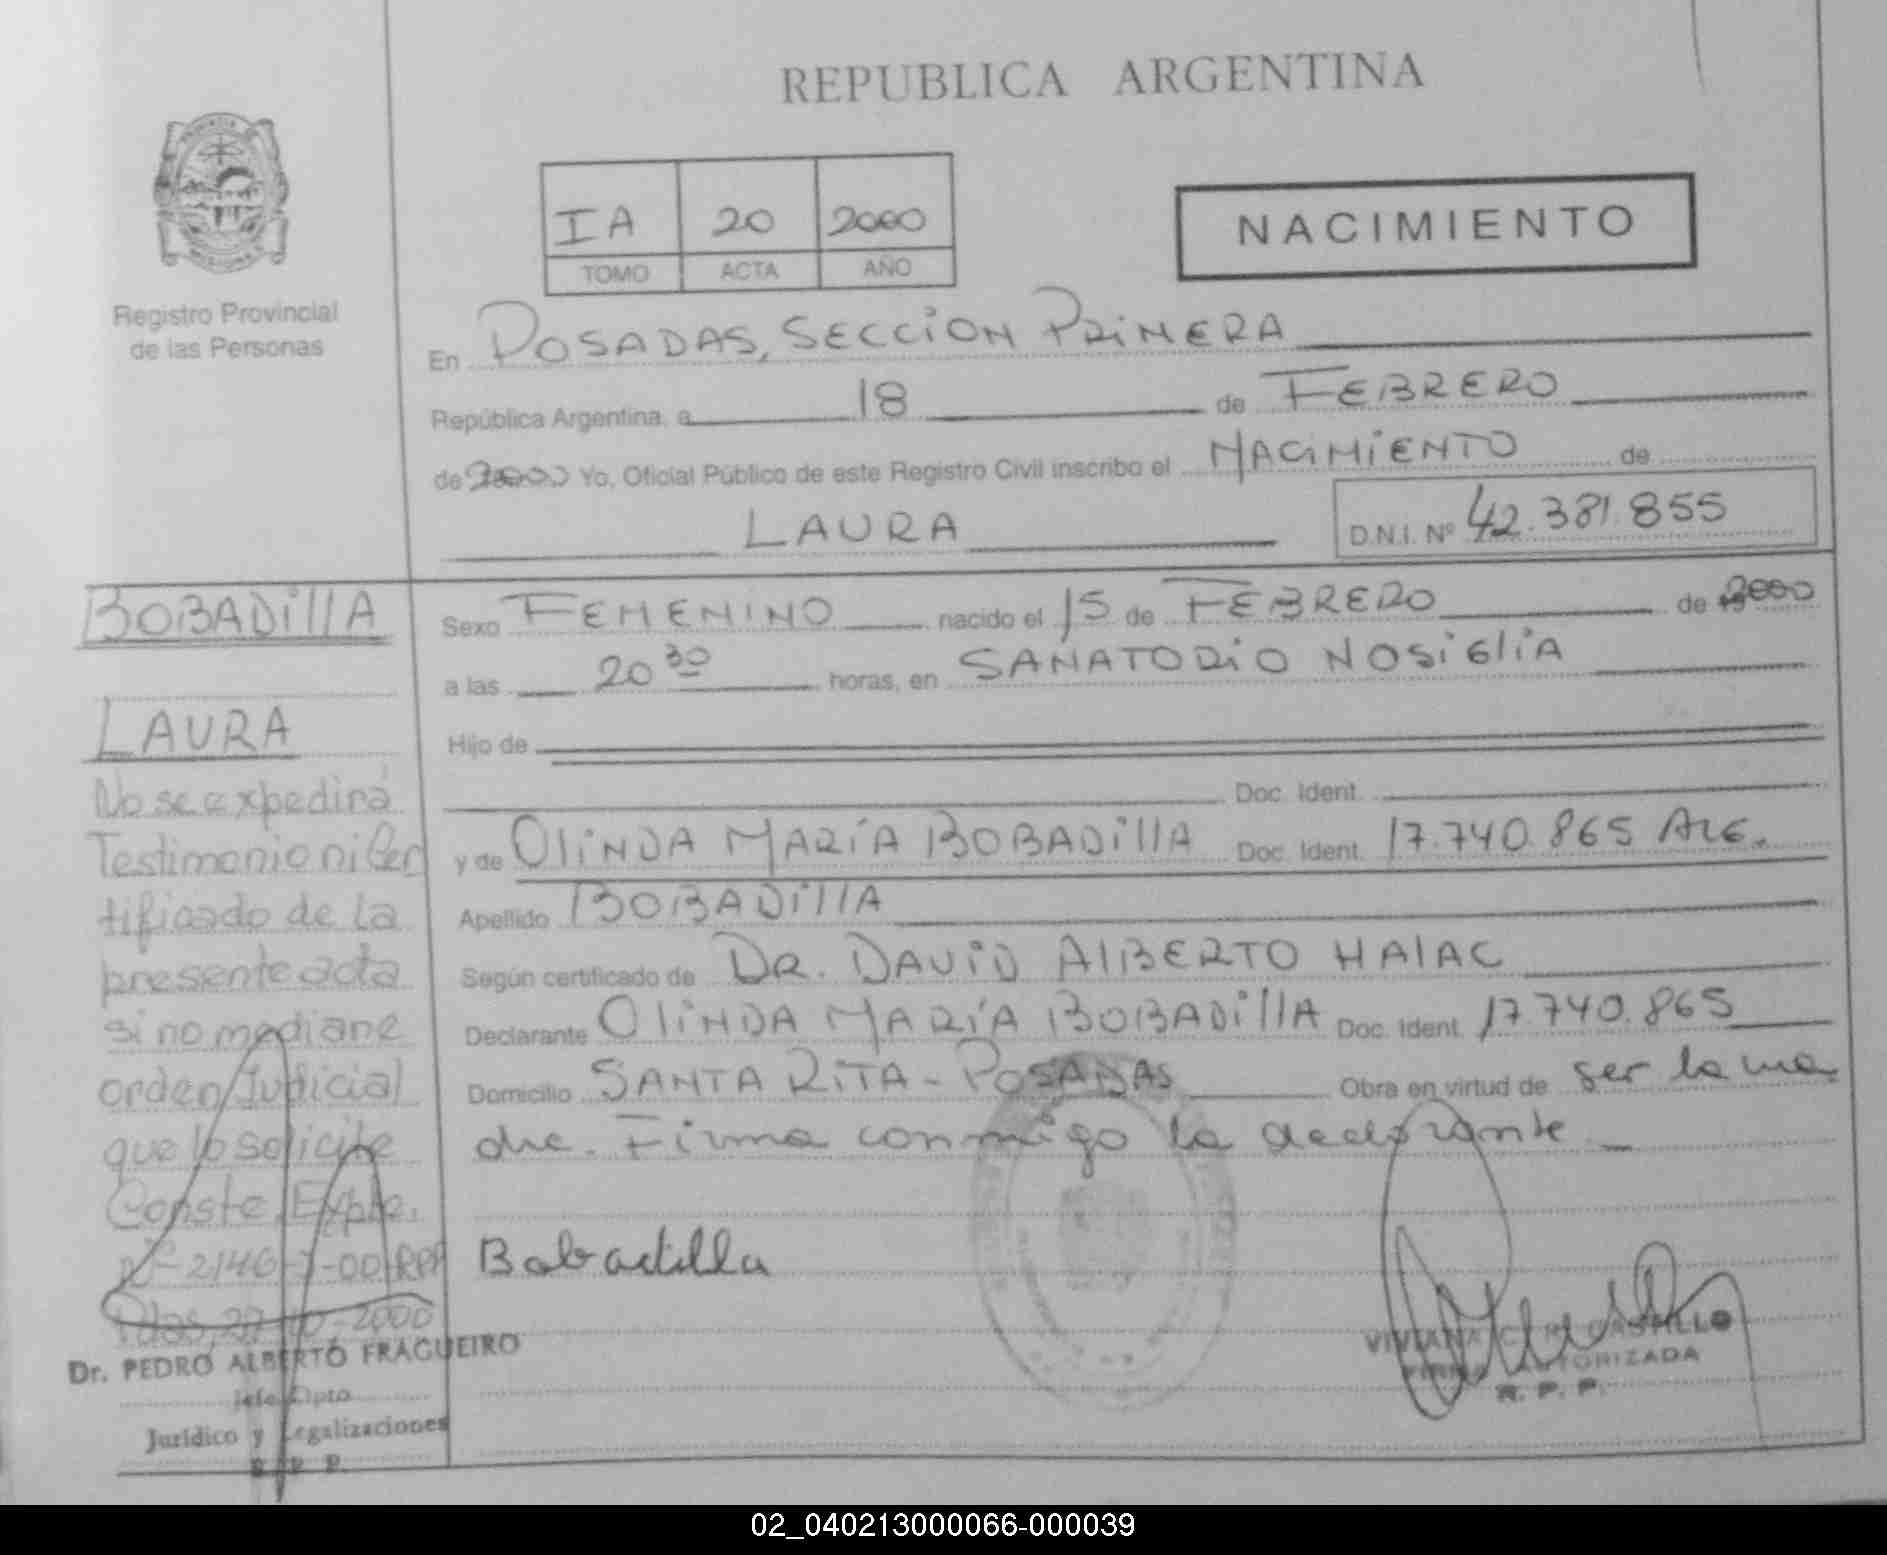 REPUBLICA ARGENTINA
Registro Provincial
de las Personas
IA 20 2000
TOMO ACTA AÑO
NACIMIENTO
En POSADAS, SECCION PRIMERA
República Argentina, a 18 de FEBRERO
de 2000 Yo, Oficial Público de este Registro Civil inscribo el NACIMIENTO de
LAURA
D.N.I. Nº 42.381.855
BOBADILLA
LAURA
No se expedirá
Testimonio ni Cer
tificado de la
presente acta
si no mediare
orden Judicial
que lo solicite
Conste, Expte.
Nº 2146-
Pdas, 27-10-2000
Dr. PEDRO ALBERTO FRAGUEIRO
Jefe Dpto
Jurídico y Legalizaciones
R. P. P.
Sexo FEMENINO nacido el 15 de FEBRERO de 2000
a las 20 30 horas, en SANATORIO NOSIGLIA
Hijo de
Doc. Ident.
y de OLINDA MARÍA BOBADILLA Doc. Ident. 17.740.865 ARG.
Apellido BOBADILLA
Según certificado de DR. DAVID ALBERTO HALAC
Declarante OLINDA MARÍA BOBADILLA Doc. Ident. 17.740.865
Domicilio SANTA RITA - POSADAS Obra en virtud de ser la ma
dre. Firma conmigo la declarante
Bobadilla
VIVIANA C. R. CASTILLO
FIRMA AUTORIZADA
R. P. P.
02_040213000066-000039